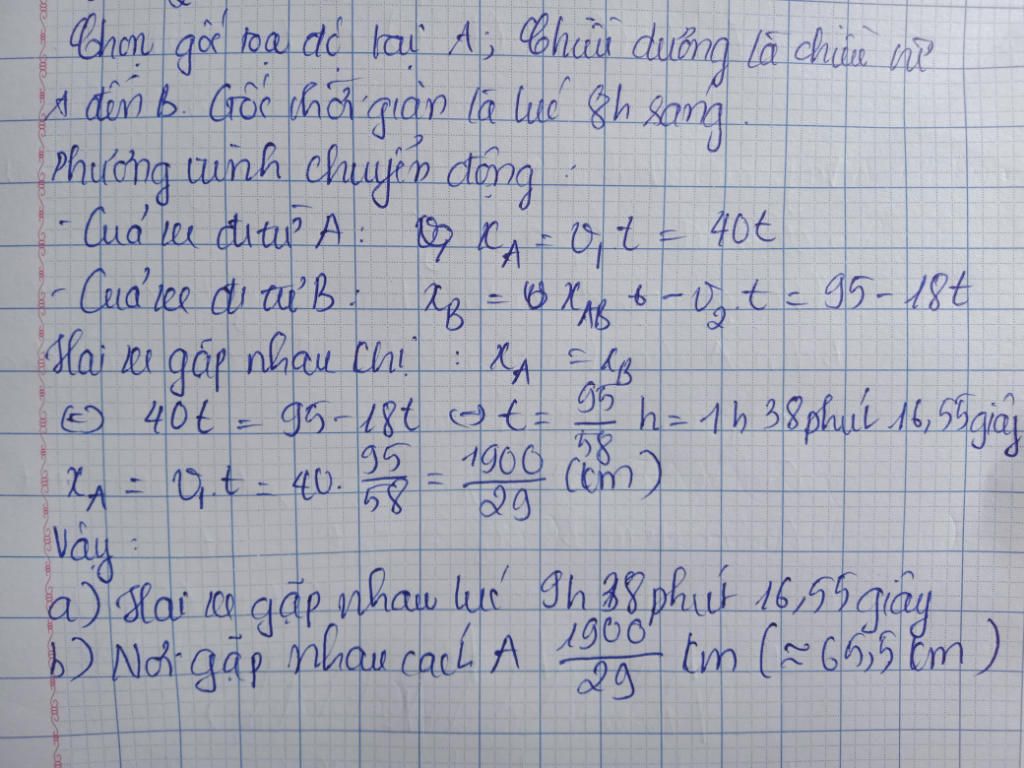 Chọn gốc tọa độ tại A; Chiều dương là chiều từ
A đến B. Gốc thời gian là lúc 8h sáng.
Phương trình chuyển động :
- Của xe đi từ A : x_A = v_1 t = 40t
- Của xe đi từ B : x_B = x_AB - v_2 . t = 95 - 18t
Hai xe gặp nhau khi : x_A = x_B
<=> 40t = 95 - 18t <=> t = 95/58 h = 1h 38 phút 16,55 giây
x_A = v_1 . t = 40 . 95/58 = 1900/29 (km)
Vậy :
a) Hai xe gặp nhau lúc 9h 38 phút 16,55 giây
b) Nơi gặp nhau cách A 1900/29 km (≈ 65,5 km)